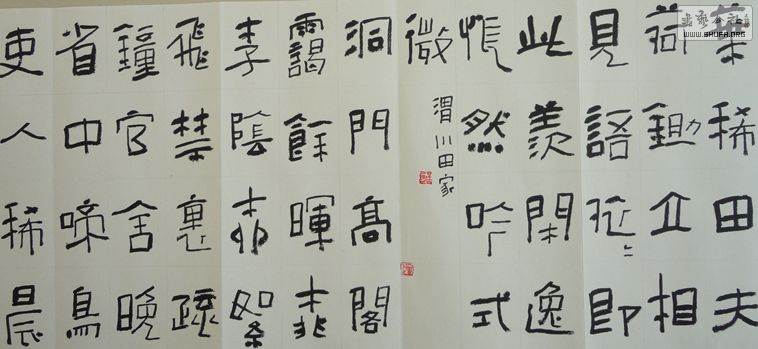 葉稀田夫
荷鋤立相
見語依〻即
此羨閑逸
悵然吟式
微
渭川田家
洞門高閣
靄餘暉桃
李陰柳絮
飛禁裏疏
鐘官舍晚
省中啼鳥
吏人稀晨
WWW.SHUFA.ORG